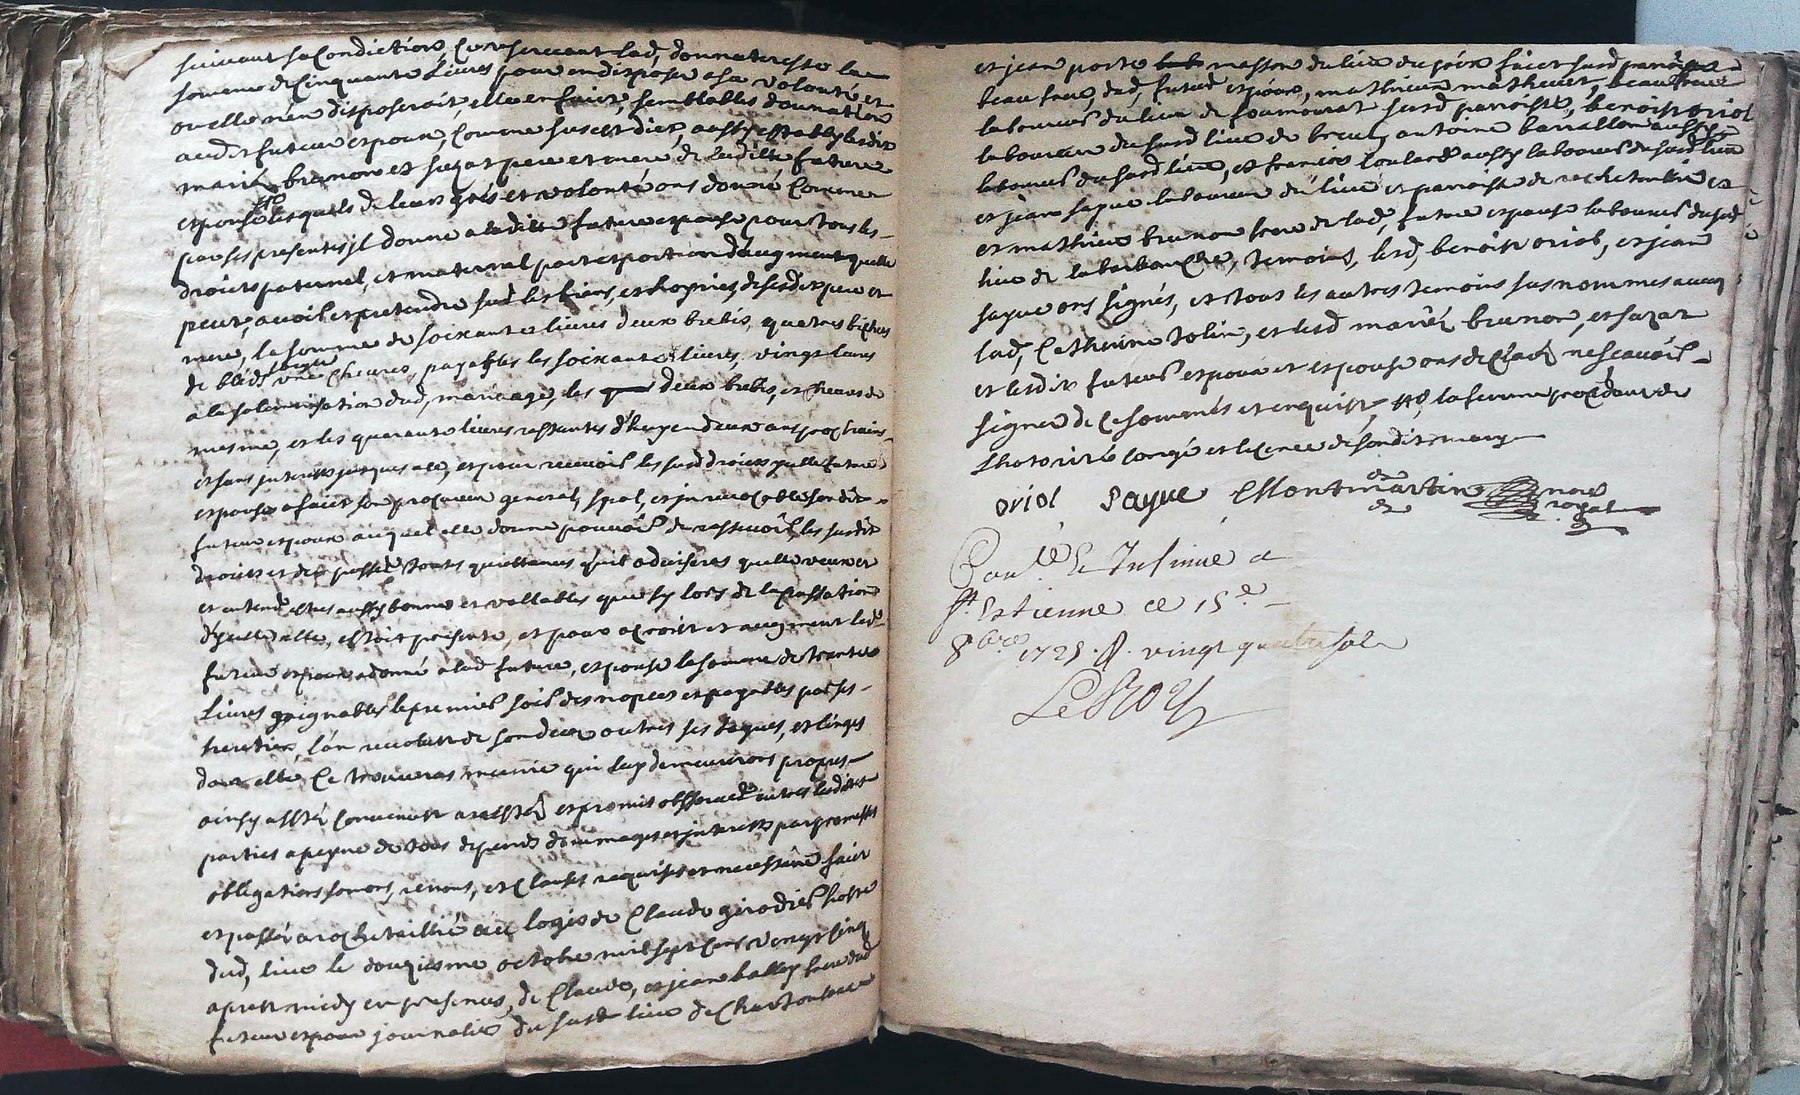 suivant sa condiction, ce reservant lad, donnateresse la
somme de cinquante livres pour en disposer a sa volonté et
ou elle n'en disposeroit, elle en faict, semblables donnation
audit futeur espoux, comme sus est dict, aussy establys lesdits
mariés brunon et sazat pere et mere de laditte future
espouse lesquels de leurs grés et volonté ons donné comme
par ses presentes jl donne a laditte future espouse pour tous les
droicts paternel, et maternel part et portion d'augment quelle
peut, avoir et pretendre sur les biens, et hoyries, de sesdits pere et
mere, la somme de soixante livres deux brebis, quatres bichets
de bled seigle une chevres, payables les soixante livres, vingt livres
a la solemnisation dud, mariage, les deux brebis, et chevres de
mesme, et les quarante livres restantes d'huy en deux ans prochains,
et sans jnterests jusques a ce, et pour recevoir les susd droicts jcelle future
espouse a faict son procureur general, spal, et jnrevocable sondit
futeur espoux auquel elle donne pouvoir de ressevoir les susdit
droicts et den passer toutes quittances quil advisera quelle veux et
entend estres aussy bonnes et vallables que sy lors de la passation
d'jcelle elle, estoit presente, et pour acroist et augment led,
futeur espoux a donné a lad future, espouse la somme de trente
livres gaignables le premier soir des nopces et payables par ses
heritiers, l'an revolut de son deces outres ses bagues, et linges
dont elle ce trouveras munie qui luy demeureront propres
ainsy a esté convenut aresté et promis observer entres lesdittes
parties a peyne de tous depends dommages et jnterests par promesses
obligations soumons, renons, et clauses requises et necessaire faict
et passé a rochetaillié au logis de Claude girodier hoste
dud, lieu le douziesme octobre mil sept cens vingt cinq
apres midy en presences, de Claude, et jean balley frere dud
futeur espoux journalié du susd lieu de
et jean porte masson du lieu du susd parroisse
beau frere, dud, futeur espoux, mathieu mathevet, beau frere
laboureur du lieu de susd parroisse, benoist oriol
laboureur du susd lieu de antoine barallon aussy
laboureur du susd lieu, et francois aussy laboureur du susd lieu
et jean sayue laboureur du lieu et parroisse de rochetaillié et
et mathieu brunon frere de lad, future espouse laboureur du susd
lieu de la temoins, lesd, benoist oriol, et jean
sayue ons signés, et tous les autres temoins susnommes avecq
lad, Catherine et lesd mariés brunon, et sazat
et lesdits futeurs espoux et espouse ons declaré ne scavoir
signer de ce sommés et enquist, la femme procedant de
lhotorité congé et licence de sondit mary
oriol sayue Montmartin nore
royal
Con.lé & Insinué a
St Estienne ce 15e
8bre 1725. R. vingt quatre sols
LeRoy